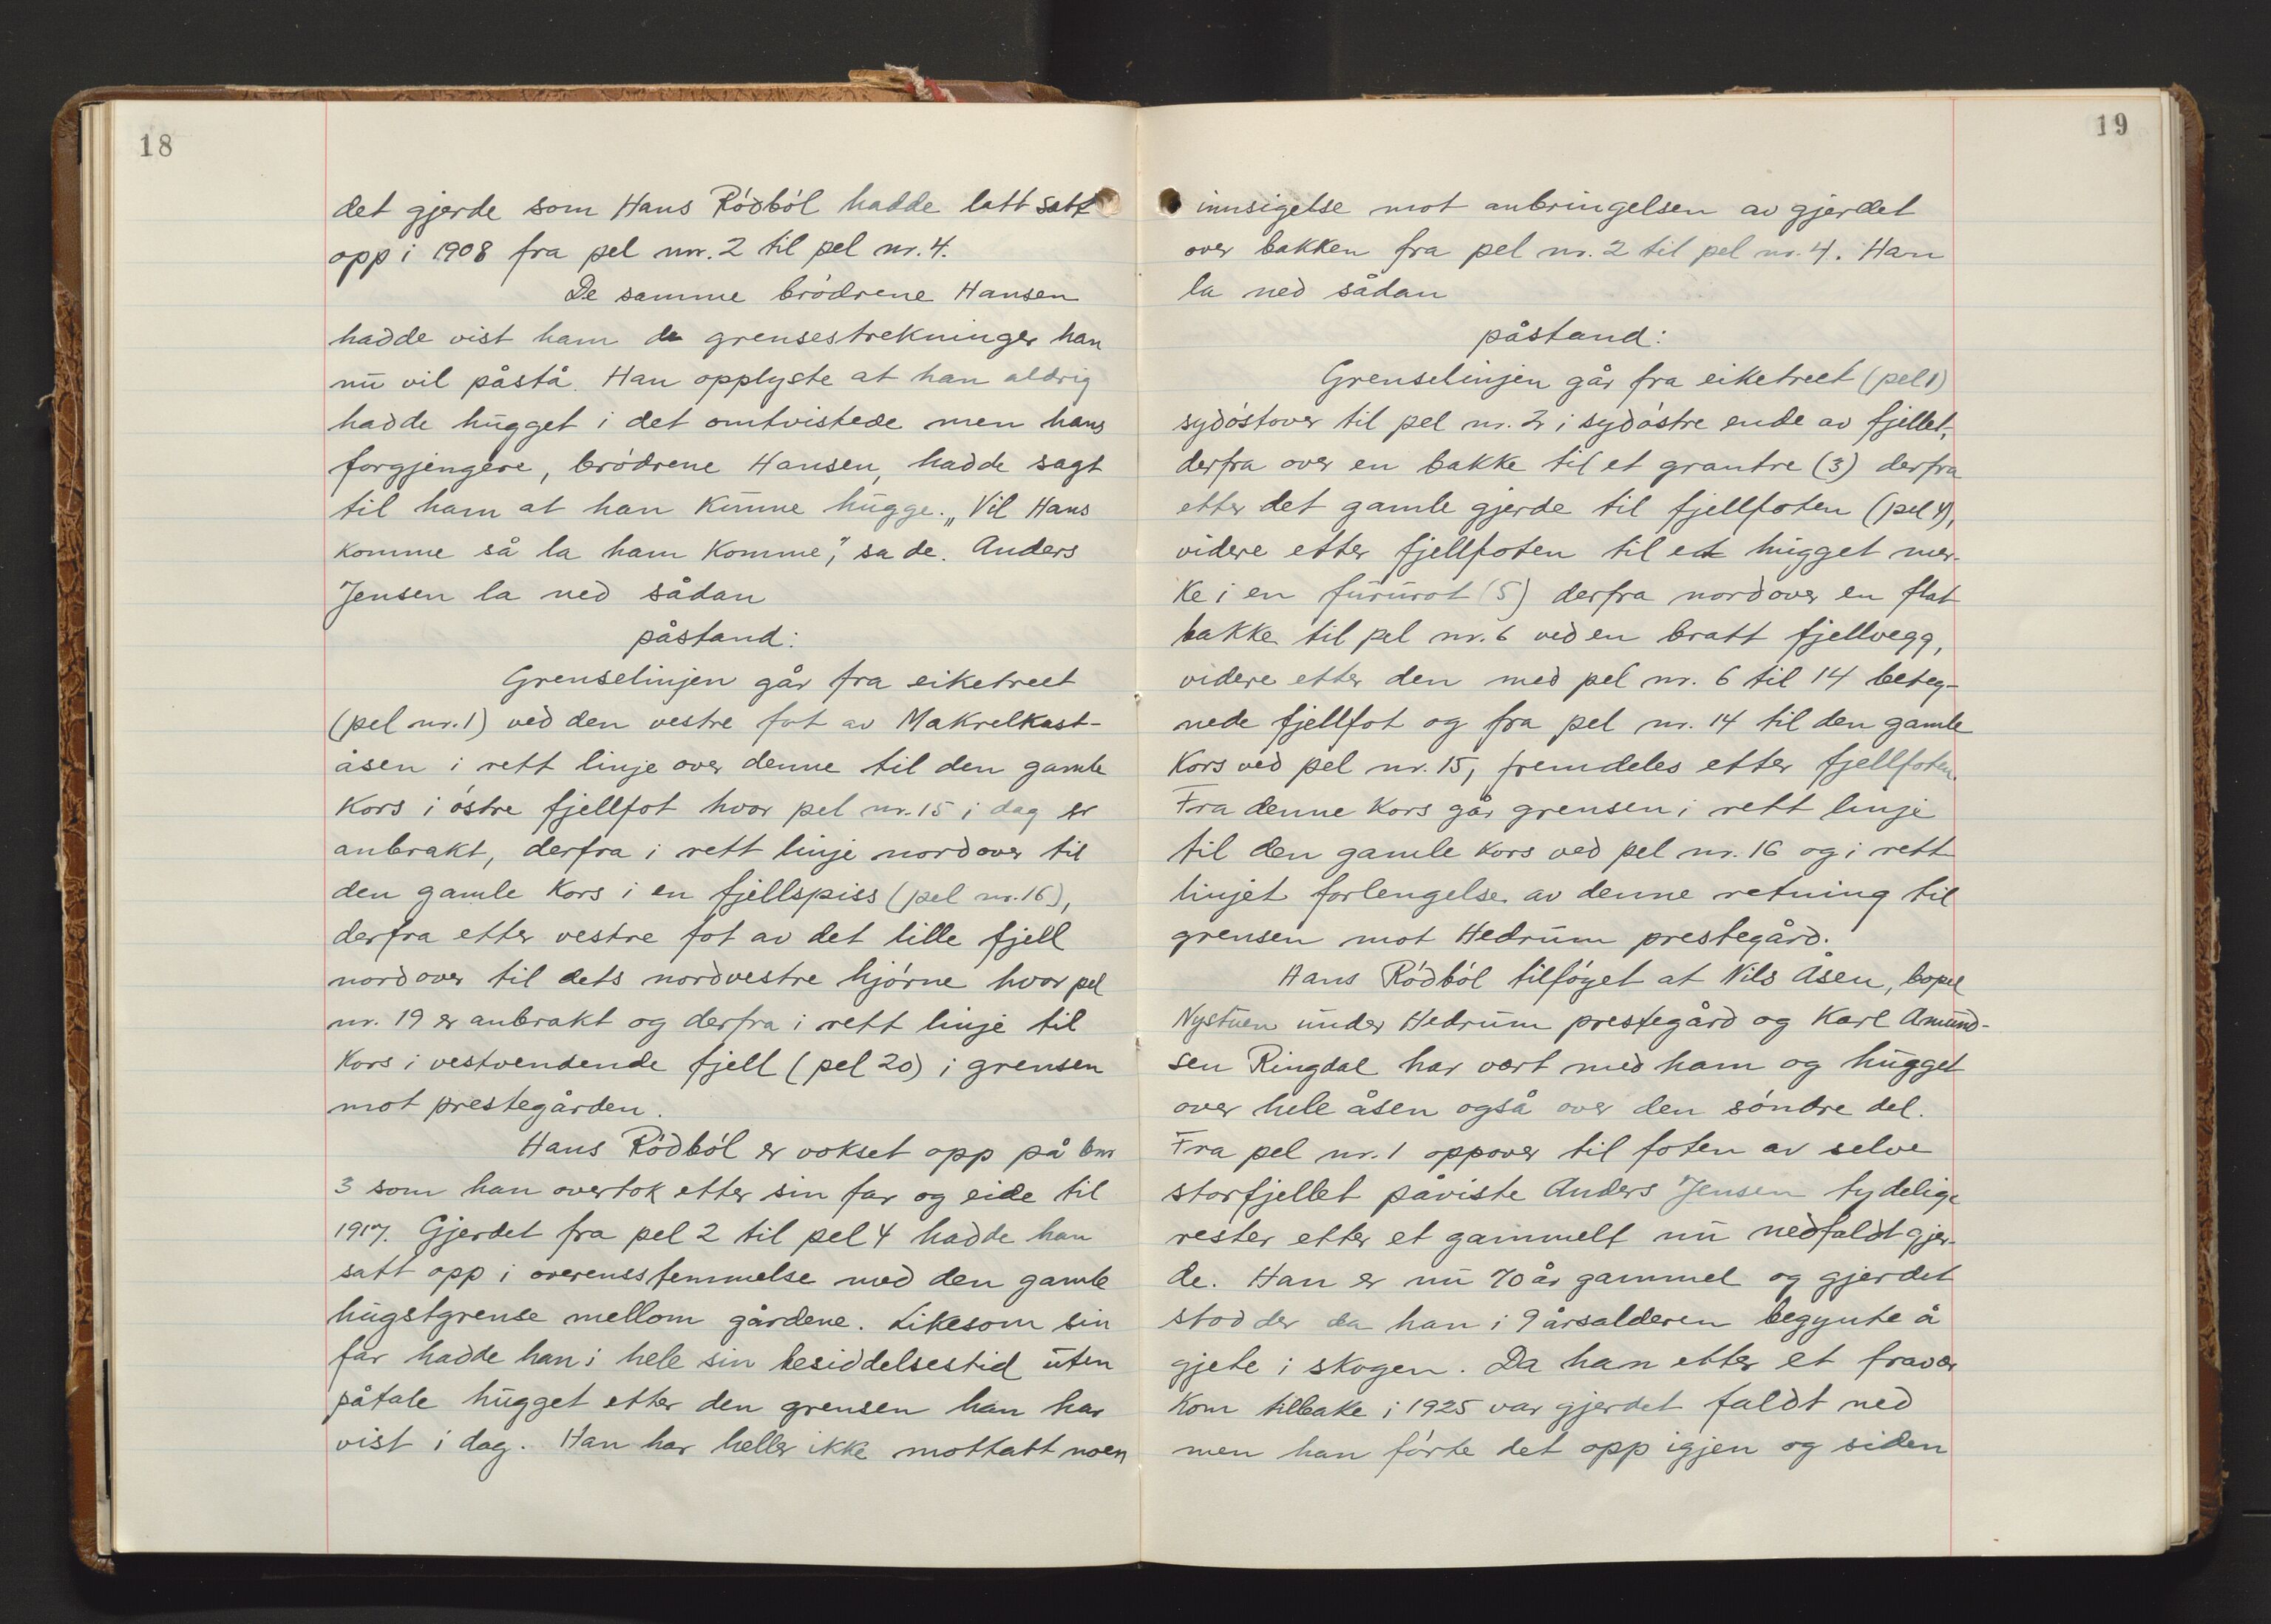 18
det gjerde som Hans Rödböl hadde latt satt
opp i 1908 fra pel nr. 2 til pel nr. 4.
De samme brödrene Hansen
hadde vist ham de grensestrekninger han
nu vil påstå. Han opplyste at han aldrig
hadde hugget i det omtvistede men hans
forgjengere, brödrene Hansen, hadde sagt
til ham at han kunne hugge. „Vil Hans
komme så la ham komme", sa de. Anders
Jensen la ned sådan
påstand:
Grenselinjen går fra eiketreet
(pel nr. 1) ved den vestre fot av Makrelkast-
åsen i rett linje over denne til den gamle
kors i östre fjellfot hvor pel nr. 15 i dag er
anbrakt, derfra i rett linje nordover til
den gamle kors i en fjellspiss (pel nr. 16),
derfra etter vestre fot av det lille fjell
nordover til dets nordvestre hjörne hvor pel
nr. 19 er anbrakt og derfra i rett linje til
kors i vestvendende fjell (pel 20) i grensen
mot prestegården.
Hans Rödböl er vokset opp på bnr
3 som han overtok etter sin far og eide til
1917. Gjerdet fra pel 2 til pel 4 hadde han
satt opp i overensstemmelse med den gamle
hugstgrense mellom gårdene. Likesom sin
far hadde han i hele sin besiddelsestid uten
påtale hugget etter den grensen han har
vist i dag. Han har heller ikke mottatt noen
19
innsigelse mot anbringelsen av gjerdet
over bakken fra pel nr. 2 til pel nr. 4. Han
la ned sådan
påstand:
Grenselinjen går fra eiketreet (pel 1)
sydöstover til pel nr. 2 i sydöstre ende av fjellet,
derfra over en bakke til et grantre (3) derfra
etter det gamle gjerde til fjellfoten (pel 4),
videre etter fjellfoten til et hugget mer-
ke i en furúrot (5) derfra nordover en flat
bakke til pel nr. 6 ved en bratt fjellvegg,
videre etter den med pel nr. 6 til 14 beteg-
nede fjellfot og fra pel nr. 14 til den gamle
kors ved pel nr. 15, fremdeles etter fjellfoten.
Fra denne kors går grensen i rett linje
til den gamle kors ved pel nr. 16 og i rett
linjet forlengelse av denne retning til
grensen mot Hedrum prestegård.
Hans Rödböl tilföyet at Nils Åsen, bopel
Nystuen under Hedrum prestegård og Karl Amund-
sen Ringdal har vært med ham og hugget
over hele åsen også over den söndre del.
Fra pel nr. 1 oppover til foten av selve
storfjellet påviste Anders Jensen tydelige
rester etter et gammelt nu nedfaldt gjer-
de. Han er nu 70 år gammel og gjerdet
stod der da han i 9 årsalderen begynte å
gjete i skogen. Da han etter et fravær
kom tilbake i 1925 var gjerdet faldt ned
men han förte det opp igjen og siden